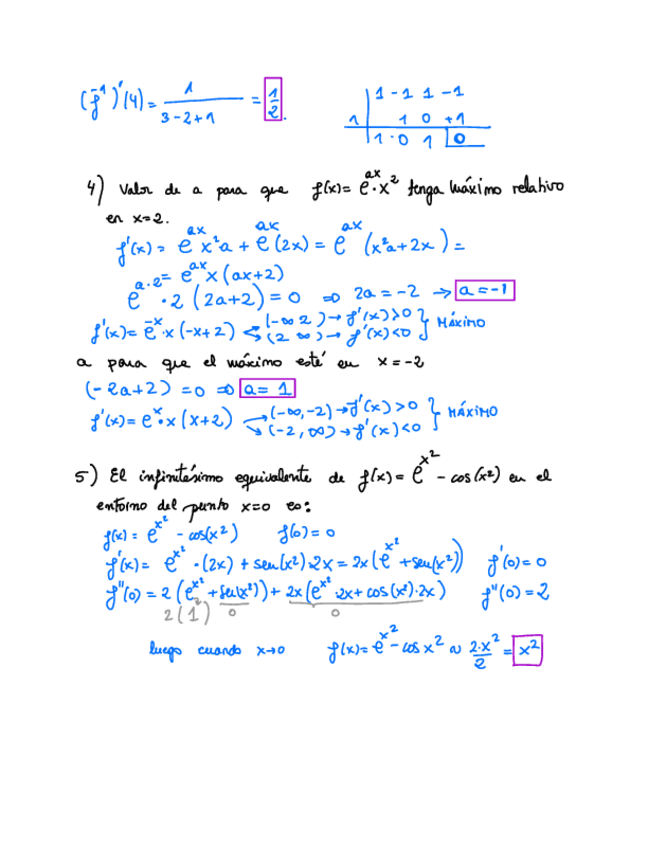 (f⁻¹)'(4) = 1/(3-2+1) = 1/2.
1 -1 1 -1
1 1 0 +1
1 0 1 0
4) Valor de a para que f(x)= e^(ax)·x² tenga Máximo relativo
en x=2.
f'(x) = e^(ax) x²a + e^(ax) (2x) = e^(ax) (x²a+2x) =
= e^(ax) x (ax+2)
e^(a·2) · 2 (2a+2) = 0 ⇒ 2a = -2 → a = -1
f'(x) = e^(-x)·x (-x+2) (-∞ 2) → f'(x)>0 } MÁXIMO
(2 ∞) → f'(x)<0
a para que el máximo esté en x = -2
(-2a+2) = 0 ⇒ a = 1
f'(x) = e^x·x (x+2) → (-∞,-2) → f'(x) > 0 } MÁXIMO
→ (-2, ∞) → f'(x) < 0
5) El infinitésimo equivalente de f(x) = e^(x²) - cos(x²) en el
entorno del punto x=0 es:
f(x) = e^(x²) - cos(x²) f(0) = 0
f'(x) = e^(x²) · (2x) + sen(x²)·2x = 2x (e^(x²) + sen(x²)) f'(0) = 0
f''(0) = 2 (e^(x²) + sen(x²)) + 2x (e^(x²)·2x + cos(x²)·2x) f''(0) = 2
2 (1) 0 0
luego cuando x→0 f(x) = e^(x²) - cos x² ~ 2·x²/2 = x²